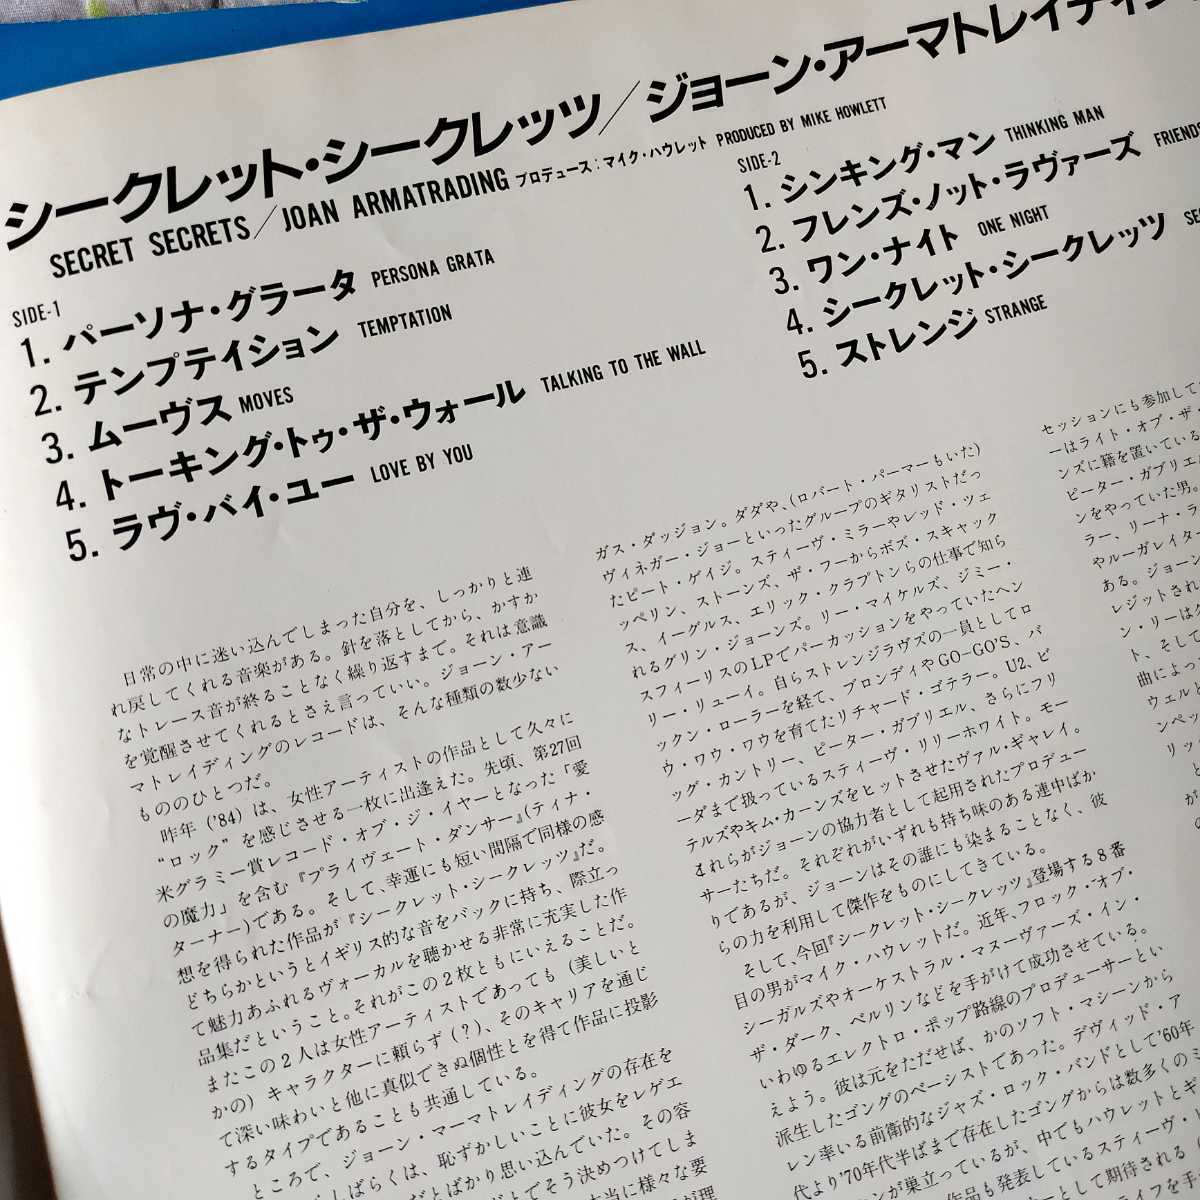 シークレット・シークレッツ/ジョーン・アーマトレイディン
SECRET SECRETS/JOAN ARMATRADING プロデュース:マイク・ハウレット PRODUCED BY MIKE HOWLETT
SIDE-1
1. パーソナ・グラータ PERSONA GRATA
2. テンプテイション TEMPTATION
3. ムーヴス MOVES
4. トーキング・トゥ・ザ・ウォール TALKING TO THE WALL
5. ラヴ・バイ・ユー LOVE BY YOU
SIDE-2
1. シンキング・マン THINKING MAN
2. フレンズ・ノット・ラヴァーズ FRIENDS
3. ワン・ナイト ONE NIGHT
4. シークレット・シークレッツ SE
5. ストレンジ STRANGE
日常の中に迷い込んでしまった自分を、しっかりと連
れ戻してくれる音楽がある。針を落としてから、かすか
なトレース音が終ることなく繰り返すまで。それは意識
を覚醒させてくれるとさえ言っていい。ジョーン・アー
マトレイディングのレコードは、そんな種類の数少ない
もののひとつだ。
昨年('84)は、女性アーティストの作品として久々に
“ロック”を感じさせる一枚に出逢えた。先頃、第27回
米グラミー賞レコード・オブ・ジ・イヤーとなった「愛
の魔力」を含む『プライヴェート・ダンサー』(ティナ・
ターナー)である。そして、幸運にも短い間隔で同様の感
想を得られた作品が『シークレット・シークレッツ』だ。
どちらかというとイギリス的な音をバックに持ち、際立っ
て魅力あふれるヴォーカルを聴かせる非常に充実した作
品集だということ。それがこの2枚ともにいえることだ。
またこの2人は女性アーティストであっても(美しいと
かの)キャラクターに頼らず(?)、そのキャリアを通じ
て深い味わいと他に真似できぬ個性とを得て作品に投影
するタイプであることも共通している。
ところで、ジョーン・マーマトレイディングの存在を
しばらくは、恥ずかしいことに彼女をレゲエ
だとばかり思い込んでいた。その容
どとでそう決めつけてしま
本当に様々な要
ガス・ダッジョン。ダダや、(ロバート・パーマーもいた)
ヴィネガー・ジョーといったグループのギタリストだっ
たピート・ゲイジ。スティーヴ・ミラーやレッド・ツェ
ッペリン、ストーンズ、ザ・フーからボズ・スキャック
ス、イーグルス、エリック・クラプトンらの仕事で知ら
れるグリン・ジョーンズ。リー・マイケルズ、ジミー・
スフィーリスのLPでパーカッションをやっていたヘン
リー・リューイ。自らストレンジラヴズの一員としてロ
ックン・ローラーを経て、ブロンディやGO-GO'S、バ
ウ・ワウ・ワウを育てたリチャード・ゴテラー。U2、ビ
ッグ・カントリー、ピーター・ガブリエル、さらにフリ
ーダまで扱っているスティーヴ・リリーホワイト。モー
テルズやキム・カーンズをヒットさせたヴァル・ギャレイ。
これらがジョーンの協力者として起用されたプロデュー
サーたちだ。それぞれがいずれも持ち味のある連中ばか
りであるが、ジョーンはその誰にも染まることなく、彼
らの力を利用して傑作をものにしてきている。
そして、今回『シークレット・シークレッツ』登場する8番
目の男がマイク・ハウレットだ。近年、フロック・オブ・
シーガルズやオーケストラル・マヌーヴァーズ・イン・
ザ・ダーク、ベルリンなどを手がけて成功させている。
いわゆるエレクトロ・ポップ路線のプロデューサーとい
えよう。彼は元をただせば、かのソフト・マシーンから
派生したゴングのベーシストであった。デヴィッド・ア
レン率いる前衛的なジャズ・ロック・バンドとして'60年
代より'70年代半ばまで存在したゴングからは数多くのミ
ンが巣立っているが、中でもハウレットとギ
作品も発表しているスティーヴ・
として期待される
セッションにも参加して
ーはライト・オブ・ザ・
ンズに籍を置いている
ピーター・ガブリエル
ンをやっていた男。
ラー、リーナ・ラ
やルーガレイター
ある。ジョーン
レジットされ
ン・リーは
ト、そして
曲によっ
ウェルと
ンペッ
リッ
と
が